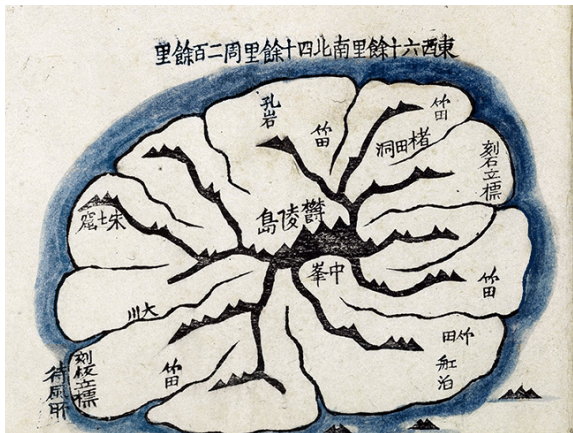 東西六十餘里南北四十餘里周二百餘里
竹田
孔岩
竹田
楮田洞
刻石立標
鬱陵島
朱土窟
中峯
竹田
大川
竹田
舡泊
竹田
刻板立標
待風所